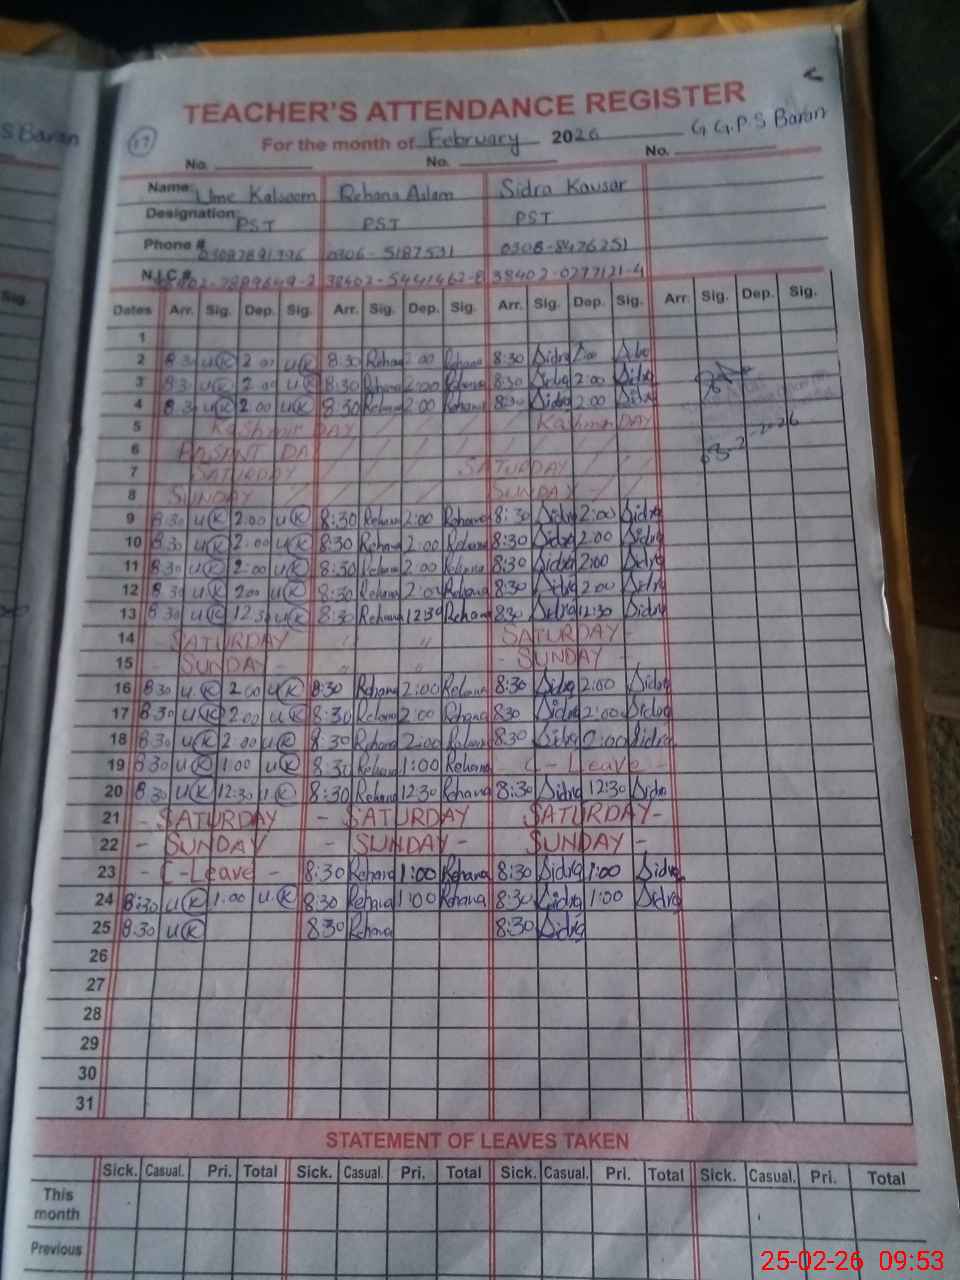 S Baran
TEACHER'S ATTENDANCE REGISTER
17 For the month of February 2026 G.G.P.S Baran
No. No. No.
Name: Ume Kalsoom Rehana Aslam Sidra Kausar
Designation: PST PST PST
Phone # 0306-5187531 0308-8426251
N.I.C.# 38402-0277121-4
Sig. Dates Arr. Sig. Dep. Sig. Arr. Sig. Dep. Sig. Arr. Sig. Dep. Sig. Arr. Sig. Dep. Sig.
1
2 8:30 UK 2:00 UK 8:30 Rehana 2:00 Rehana 8:30 Sidra 2:00
3 8:30 UK 2:00 UK 8:30 Rehana 2:00 Rehana 8:30 Sidra 2:00 Sidra
4 8:30 UK 2:00 UK 8:30 Rehana 2:00 Rehana 8:30 Sidra 2:00 Sidra
5 Kashmir DAY Kashmir DAY
6 BASANT DAY
7 SATURDAY SATURDAY
8 SUNDAY SUNDAY
9 8:30 UK 2:00 UK 8:30 Rehana 2:00 Rehana 8:30 Sidra 2:00 Sidra
10 8:30 UK 2:00 UK 8:30 Rehana 2:00 Rehana 8:30 Sidra 2:00 Sidra
11 8:30 UK 2:00 UK 8:30 Rehana 2:00 Rehana 8:30 Sidra 2:00 Sidra
12 8:30 UK 2:00 UK 8:30 Rehana 2:00 Rehana 8:30 Sidra 2:00 Sidra
13 8:30 UK 12:30 UK 8:30 Rehana 12:30 Rehana 8:30 Sidra 12:30 Sidra
14 SATURDAY " " SATURDAY -
15 - SUNDAY - " " - SUNDAY -
16 8:30 UK 2:00 UK 8:30 Rehana 2:00 Rehana 8:30 Sidra 2:00 Sidra
17 8:30 UK 2:00 UK 8:30 Rehana 2:00 Rehana 8:30 Sidra 2:00 Sidra
18 8:30 UK 2:00 UK 8:30 Rehana 2:00 Rehana 8:30 Sidra 2:00 Sidra
19 8:30 UK 1:00 UK 8:30 Rehana 1:00 Rehana - C- Leave -
20 8:30 UK 12:30 UK 8:30 Rehana 12:30 Rehana 8:30 Sidra 12:30 Sidra
21 - SATURDAY - SATURDAY SATURDAY-
22 - SUNDAY - SUNDAY - SUNDAY -
23 - C-Leave - 8:30 Rehana 1:00 Rehana 8:30 Sidra 1:00 Sidra
24 8:30 UK 1:00 UK 8:30 Rehana 1:00 Rehana 8:30 Sidra 1:00 Sidra
25 8:30 UK 8:30 Rehana 8:30 Sidra
26
27
28
29
30
31
STATEMENT OF LEAVES TAKEN
Sick. Casual. Pri. Total Sick. Casual. Pri. Total Sick. Casual. Pri. Total Sick. Casual. Pri. Total
This
month
Previous
25-02-26 09:53